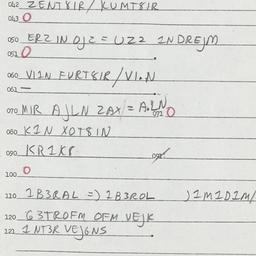 042 ZENT8IR/KUMT8IR
043 O
050 ERZ IN OJC = UZ2 1NDREJM
051 O
060 VI1N FURT8IR/VI.N
061 —
070 MIR AJLN ZAX = A.LN
071 O
080 K1N XOT8IN
090 KR1KR
091
100 O
110 1B3RAL => 1B3ROL )1M1D1M/
120 G3TROFM OFM VEJK
121 1NT3R VEJGNS